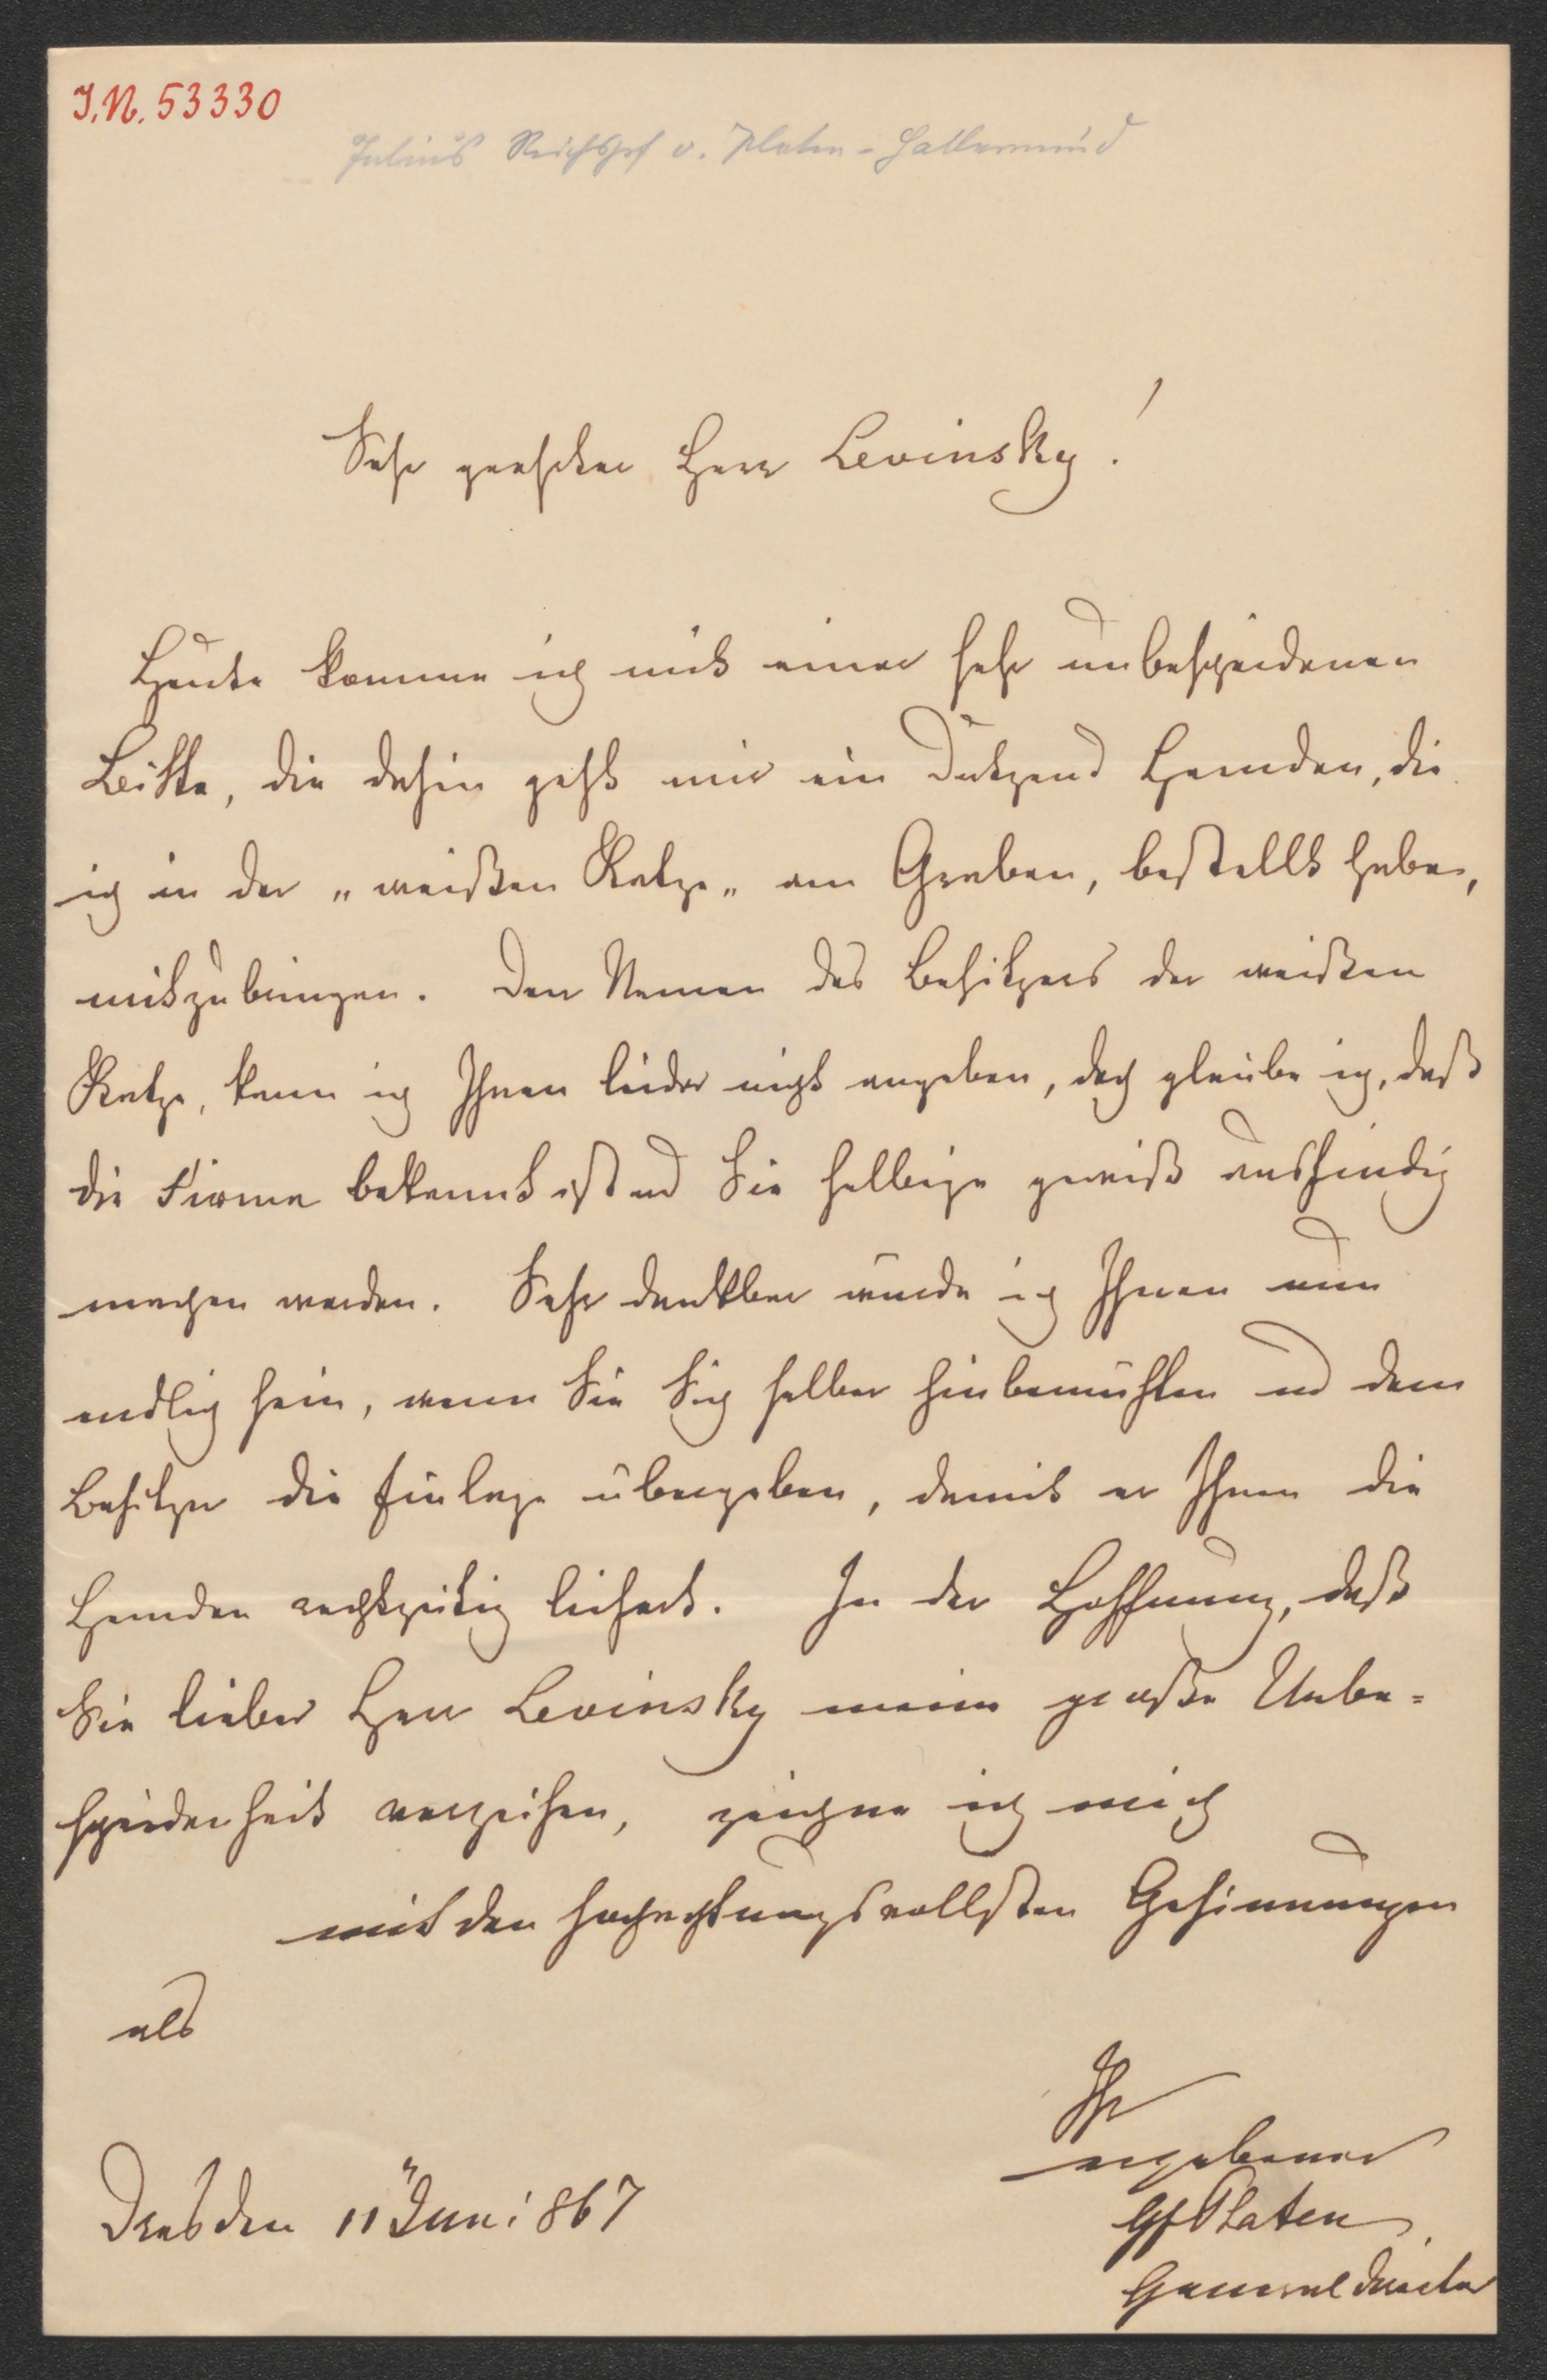 J.N. 53330
Julius Reichsgf v. Platen-Hallermund
Sehr geehrter Herr Levinsky!
Heute komme ich mit einer sehr unbescheidenen
Bitte, die dahin geht mir ein Dutzend Hemden, die
ich in der „weißen Katze„ am Graben, bestellt habe,
mitzubringen. Den Namen des Besitzers der weißen
Katze, kann ich Ihnen leider nicht angeben, doch glaube ich, daß
die Firma bekannt ist und Sie selbige gewiß ausfindig
machen werden. Sehr dankbar würde ich Ihnen nun
endlich sein, wenn Sie Sich selber hinbemühten und dem
Besitzer die Einlage übergeben, damit er Ihnen die
Hemden rechtzeitig liefert. In der Hoffnung, daß
Sie lieber Herr Levinsky meine große Unbe=
scheidenheit verzeihen, zeichne ich mich
mit den hochachtungsvollsten Gesinnungen
als
Ihr
ergebener
Dresden 11 Juni 867
Gf Platen
Generaldirector